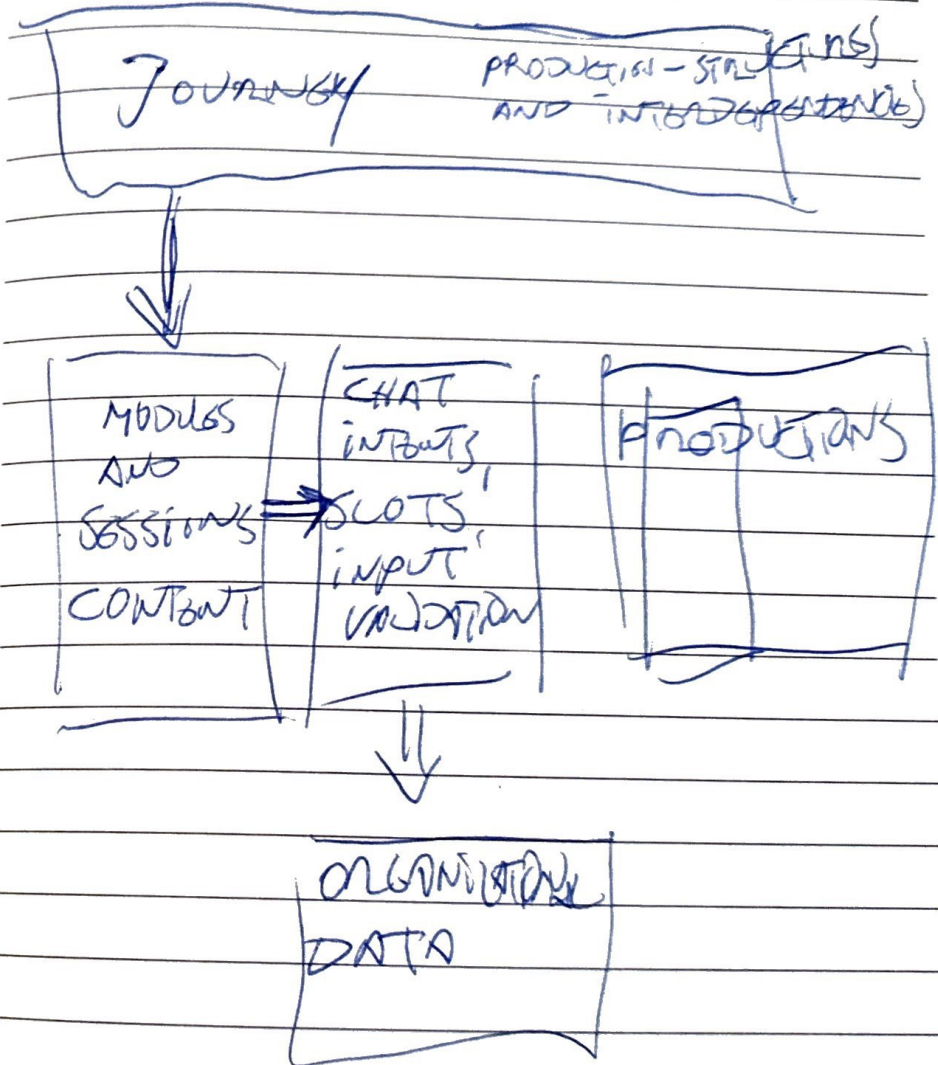 JOURNEY
PRODUCTION-STRUCTURES
AND INTERDEPENDENCIES
MODULES
AND
SESSIONS
CONTENT
CHAT
INTENTS,
SLOTS,
INPUT
VALIDATION
PRODUCTIONS
ORGANISATIONAL
DATA